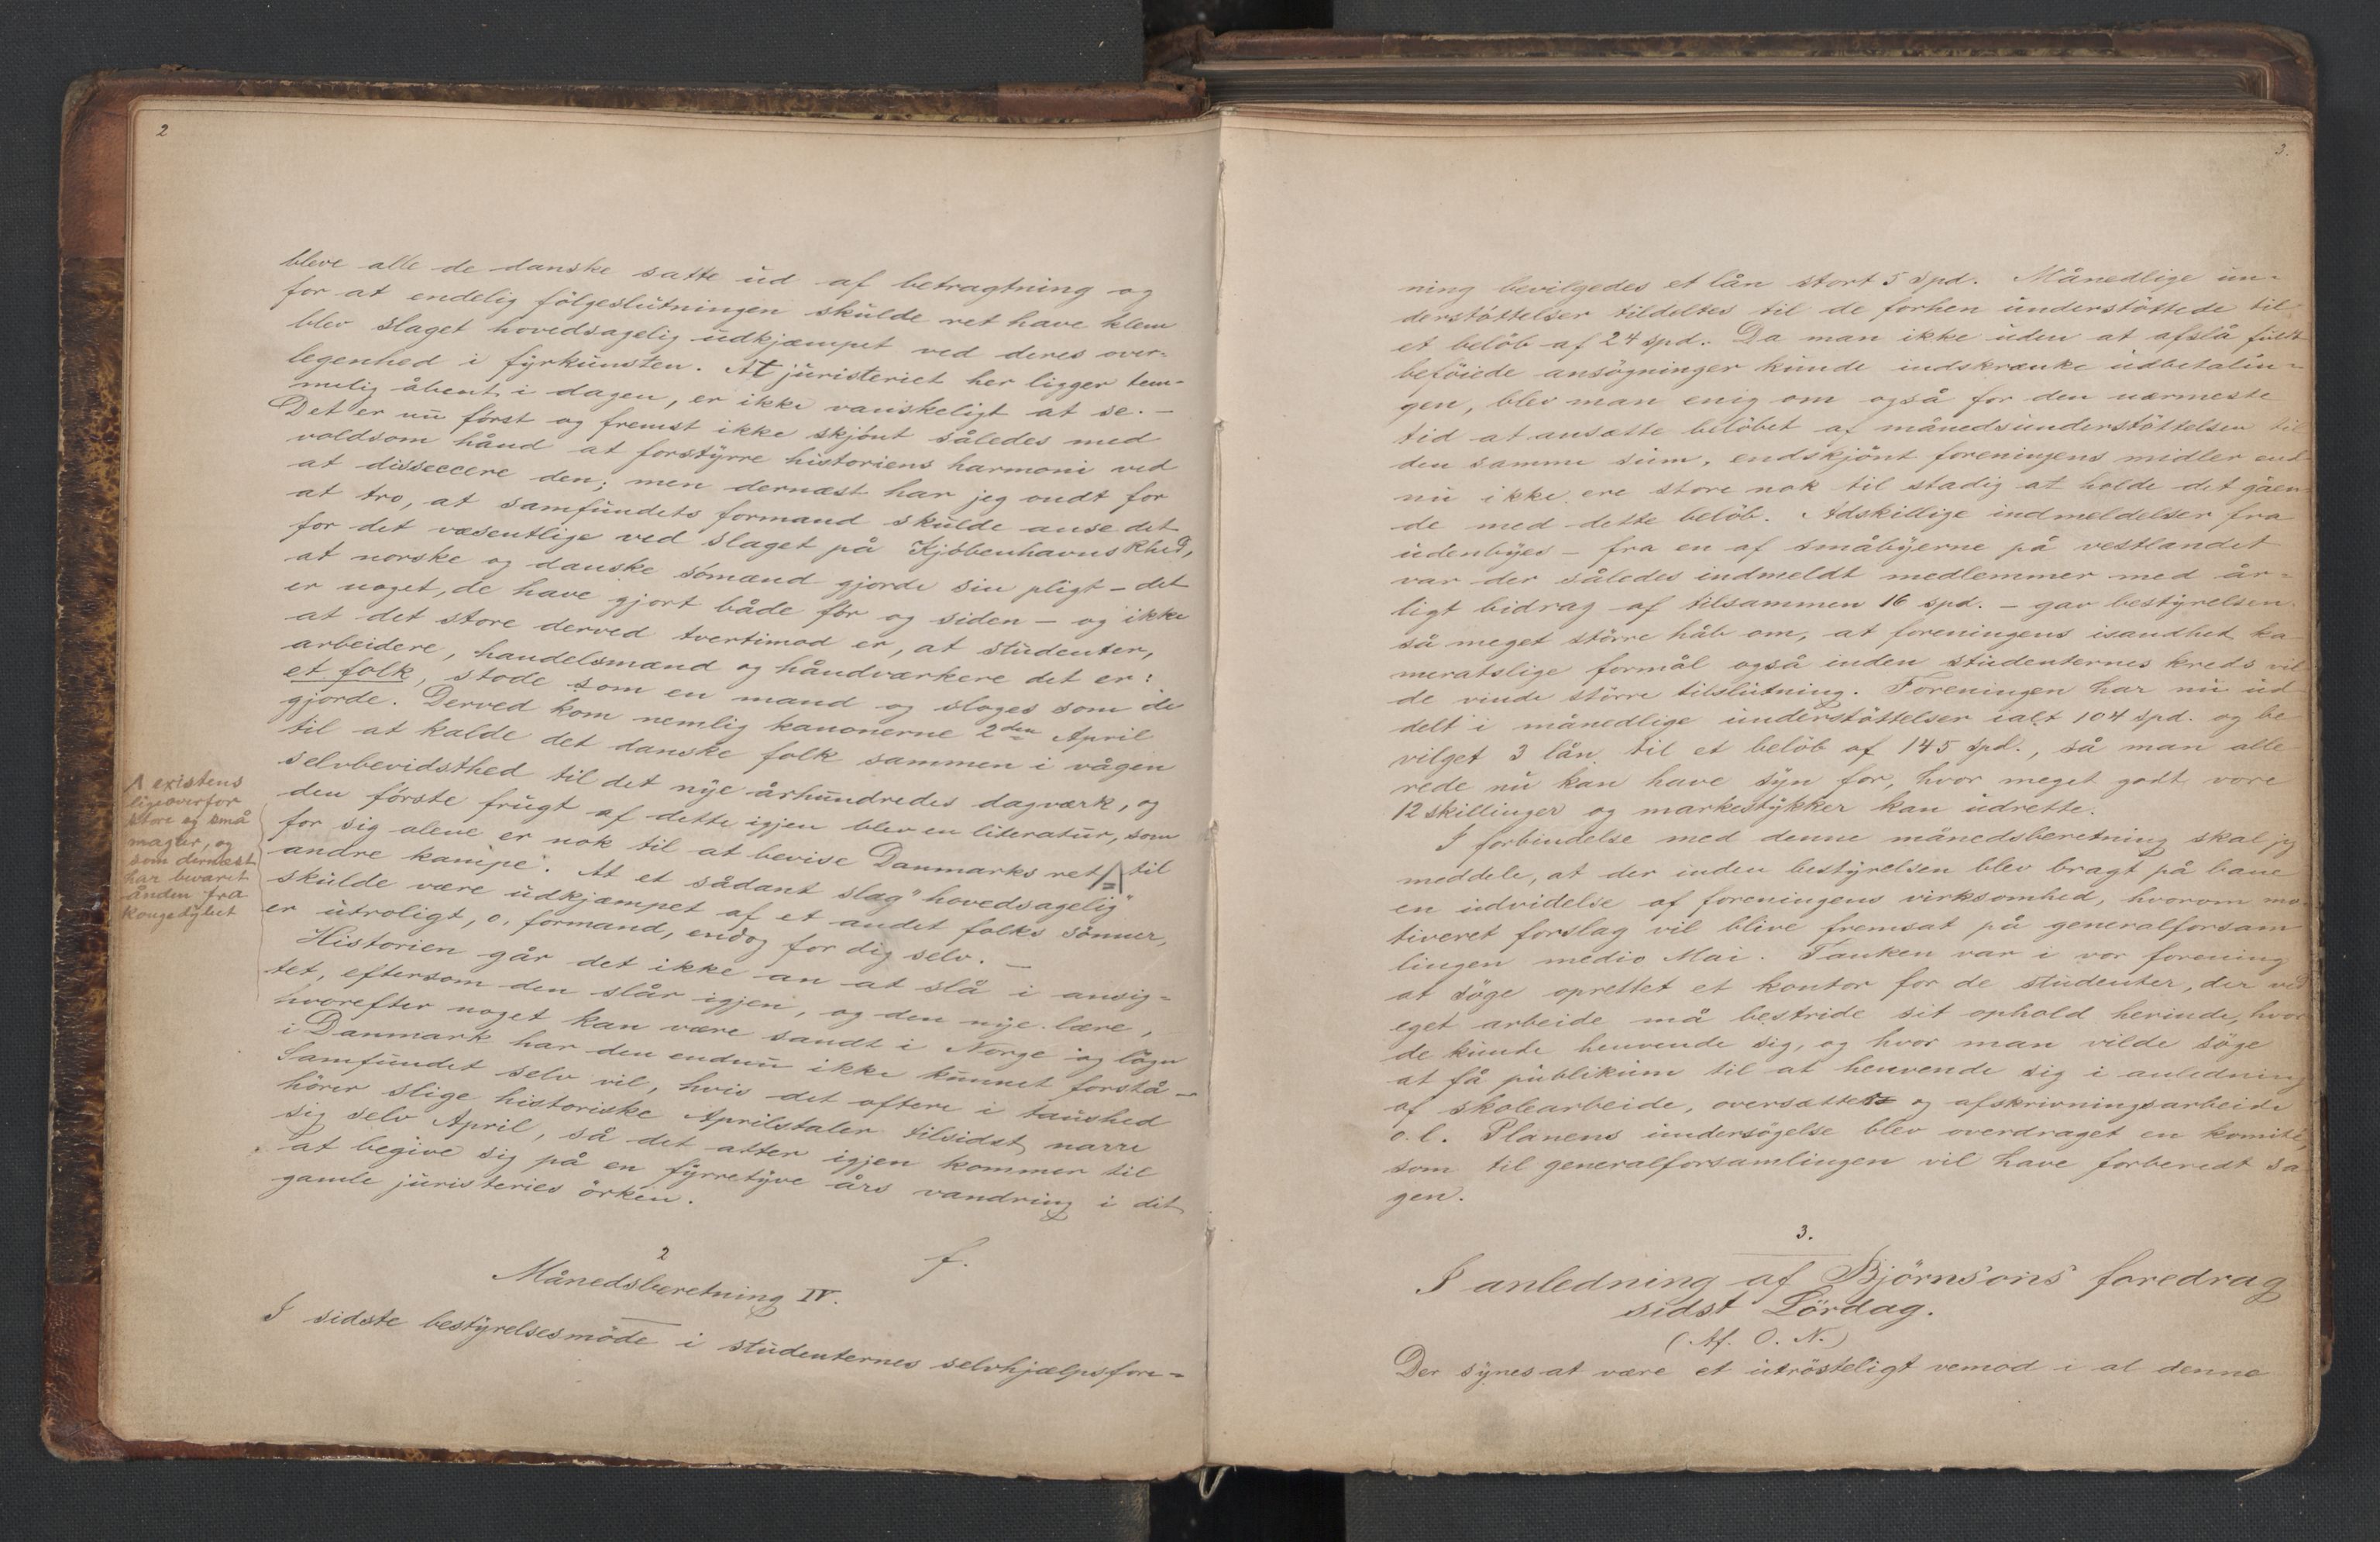 2
bleve alle de danske satte ud af betragtning og
for at endelig følgeslutningen skulde ret have klem
blev slaget hovedsagelig udkjæmpet ved deres over-
legenhed i fyrkunsten. At juristeriet her ligger tem-
melig åbent i dagen, er ikke vanskeligt at se. –
Det er nu først og fremst ikke skjønt således med
voldsom hånd at forstyrre historiens harmoni ved
at disseccere den; men dernæst har jeg ondt for
at tro, at samfundets formand skulde anse det
for det væsentlige ved slaget på Kjøbenhavns Rhed,
at norske og danske sömænd gjorde sin pligt – det
er noget, de have gjort både før og siden – og ikke
at det store derved tvertimod er, at studenter,
arbeidere, handelsmænd og håndværkere det er:
et folk, stode som en mand og sloges som de
gjorde. Derved kom nemlig kanonerne 2den April
til at kalde det danske folk sammen i vågen
selvbevidsthed til det nye århundredes dagværk, og
den første frugt af dette igjen blev en literatur, som
for sig alene er nok til at bevise Danmarks ret ⋀ til
andre kampe. At et sådant slag "hovedsagelig"
skulde være udkjæmpet af et andet folks sønner,
er utroligt, o, formand, endog for dig selv. –
⋀ existens
ligeoverfor
store og små
magter, og
som dernæst
har bevaret
ånden fra
kongedybet
Historien går det ikke an at slå i ansig-
tet, eftersom den slår igjen, og den nye lære,
hvorefter noget kan være sandt i Norge og løgn
i Danmark har den endnu ikke kunnet forstå –
Samfundet selv vil, hvis det oftere i taushed
hører slige historiske Aprilstaler tilsidst narre
sig selv April, så det atter igjen kommer til
at begive sig på en fyrretyve års vandring i dit
gamle juristeries ørken.
f.
2
Månedsberetning IV.
I sidste bestyrelsesmøde i studenternes selvhjælpsfore-
3.
ning bevilgedes et lån stort 5 spd. Månedlige un-
derstøttelser tildeltes til de forhen understøttede til
et beløb af 24 spd. Da man ikke uden at afslå fuldt
beføiede ansøgninger kunde indskrænke udbetalin-
gen, blev man enig om også for den nærmeste
tid at ansætte beløbet af månedsunderstøttelsen til
den samme sum, endskjønt foreningens midler end
nu ikke ere store nok til stadig at holde det gåen-
de med dette beløb. Adskillige indmeldelser fra
udenbyes – fra en af småbyerne på vestlandet
var der således indmeldt medlemmer med år-
ligt bidrag af tilsammen 16 spd. – gav bestyrelsen
så meget større håb om, at foreningens isandhed ka
meratslige formål også inden studenternes kreds vil
de vinde større tilslutning. Foreningen har nu ud
delt i månedlige understøttelser ialt 104 spd. og be
vilget 3 lån til et beløb af 145 spd., så man alle
rede nu kan have syn for, hvor meget godt vore
12 skillinger og markestykker kan udrette.
I forbindelse med denne månedsberetning skal jeg
meddele, at der inden bestyrelsen blev bragt på bane
en udvidelse af foreningens virksomhed, hvorom mo-
tiveret forslag vil blive fremsat på generalforsam
lingen medio Mai. Tanken var i vor forening
at søge oprettet et kontor for de studenter, der ved
eget arbeide må bestride sit ophold herinde, hvor
de kunde henvende sig, og hvor man vilde søge
at få publikum til at henvende sig i anledning
af skolearbeide, oversættel og afskrivningsarbeide
o.l. Planens undersøgelse blev overdraget en komité,
som til generalforsamlingen vil have forberedt sa
gen.
3.
I anledning af Bjørnsons foredrag
sidst Lørdag.
(Af. O. N.)
Der synes at være et utrøsteligt vemod i al denne